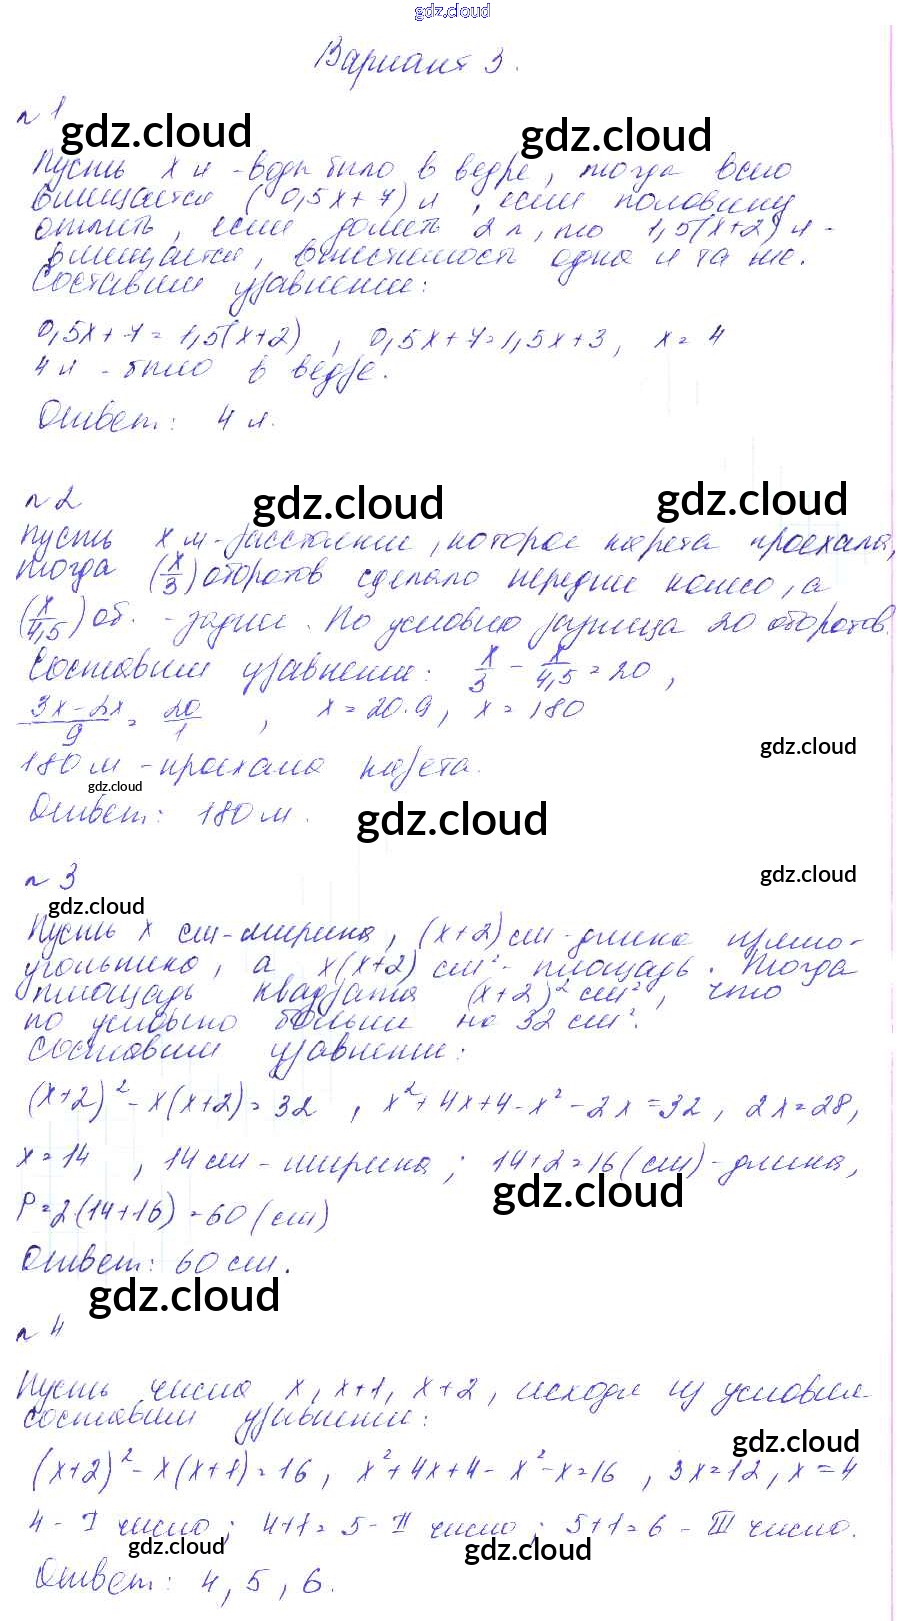 gdz.cloud
Вариант 3.
n 1
gdz.cloud gdz.cloud
Пусть x л - воды было в ведре, тогда всего
вмещается (0,5x+7) л, если половину
отлить, если долить 2 л, то 1,5(x+2) л -
вмещается, вместимость одна и та же.
Составим уравнение:
0,5x+7=1,5(x+2), 0,5x+7=1,5x+3, x=4
4 л - было в ведре.
Ответ: 4 л.
n 2
gdz.cloud gdz.cloud
Пусть x м - расстояние, которое карета проехала,
тогда (x/3) оборотов сделало переднее колесо, а
(x/4,5) об. - заднее. По условию разница 20 оборотов.
Составим уравнение: x/3 - x/4,5 = 20,
3x-2x/9 = 20/1, x=20·9, x=180
gdz.cloud
180 м - проехала карета.
gdz.cloud
Ответ: 180 м.
gdz.cloud
n 3
gdz.cloud
gdz.cloud
Пусть x см - ширина, (x+2) см - длина прямо-
угольника, а x(x+2) см² - площадь. Тогда
площадь квадрата (x+2)² см², что
по условию больше на 32 см².
Составим уравнение:
(x+2)² - x(x+2) = 32, x²+4x+4-x²-2x=32, 2x=28,
x=14, 14 см - ширина; 14+2=16 (см) - длина,
gdz.cloud
P=2·(14+16)=60 (см)
Ответ: 60 см.
gdz.cloud
n 4
Пусть числа x, x+1, x+2, исходя из условия
составим уравнение:
gdz.cloud
(x+2)² - x(x+1)=16, x²+4x+4-x²-x=16, 3x=12, x=4
4 - I число; 4+1=5 - II число; 5+1=6 - III число.
gdz.cloud gdz.cloud
Ответ: 4, 5, 6.